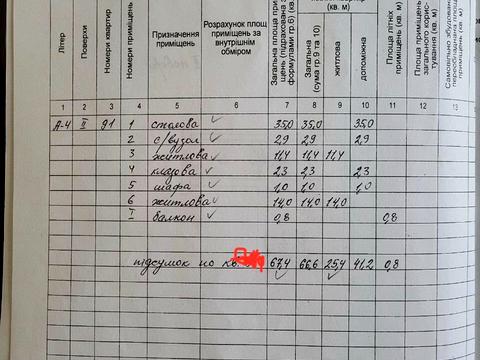 Літер
Поверхи
Номери квартир
Номери приміщень
Призначення приміщень
Розрахунок площ приміщень за внутрішнім обміром
Загальна площа при-
щень (підрахована з
формулами гр.6) (кв.
Загальна (кв. м)
(сума гр 9 та 10)
житлова
допоміжна
(кв. м)
Площа літніх приміщень (кв. м)
Площа приміщень загального корис-
тування (кв. м)
1 2 3 4 5 6 7 8 9 10 11 12 13
А-4 ІІ 91 1 столова 35,0 35,0 35,0
2 с/вузол 2,9 2,9 2,9
3 житлова 11,4 11,4 11,4
4 кладова 2,3 2,3 2,3
5 шафа 1,0 1,0 1,0
6 житлова 14,0 14,0 14,0
І балкон 0,8 0,8
підсумок по кв. 67,4 66,6 25,4 41,2 0,8